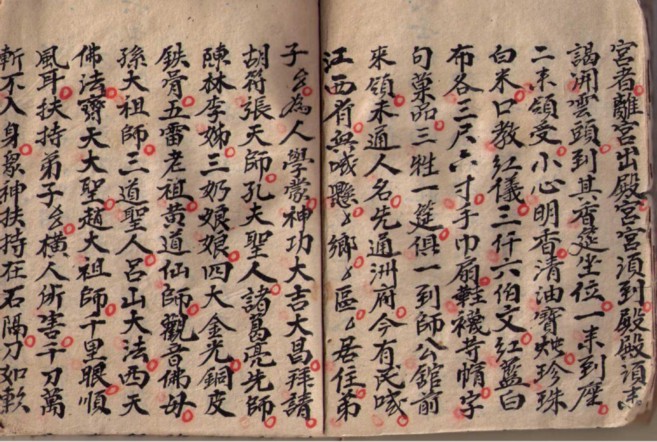 宮者離宮出殿宮宮須到殿殿須来
謁開雲頭到其香筵坐位一来到座
二来領受小心明香清油寶燭珍珠
白米口教紅儀三仟六伯文紅藍白
布各三尺六寸手巾扇鞋襪苛帽字
句菓品三牲一筵俱一到師公舘前
来領未通人名先通洲府今有民哦
江西省 懸鄉區居住弟
子 為人學蒙神功大吉大昌拜請
胡符張天師孔夫聖人諸葛亮先師
陳林李姊三奶娘娘四大金光銅皮
鉄骨五雷老祖黄道仙師觀音佛母
孫大祖師三道聖人呂山大法西天
佛法齊天大聖趙大祖師千里眼順
風耳扶持弟子 橫人術害千刀萬
斬不入身眾神扶持在石隔刀如軟